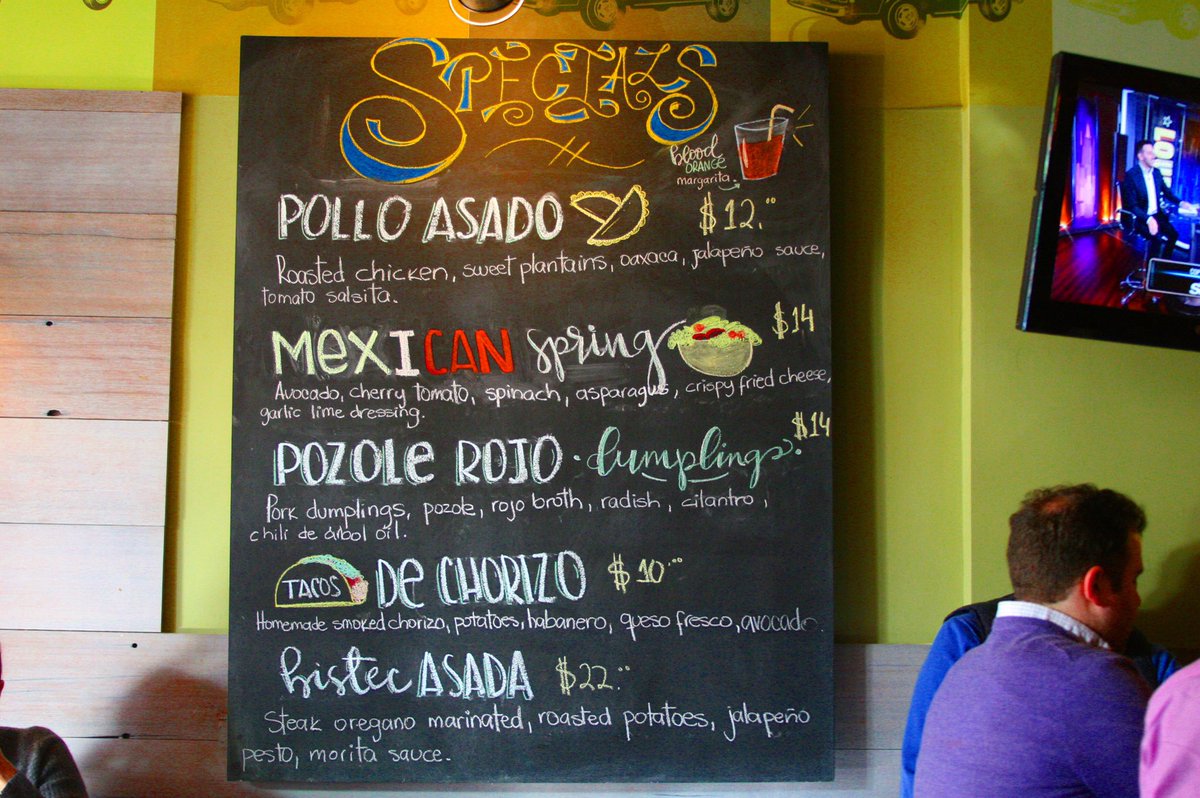 SPECIALS
blood
ORANGE
margarita.
POLLO ASADO $12.00
Roasted chicken, sweet plantains, oaxaca, jalapeño sauce,
tomato salsita.
MEXICAN spring $14
Avocado, cherry tomato, spinach, asparagus, crispy fried cheese,
garlic lime dressing.
POZOLE ROJO · dumplings. $14
Pork dumplings, pozole, rojo broth, radish, cilantro,
chili de árbol oil.
TACOS DE CHORIZO $10.00
Homemade smoked chorizo, potatoes, habanero, queso fresco, avocado
bistec ASADA $22.00
Steak oregano marinated, roasted potatoes, jalapeño
pesto, morita sauce.